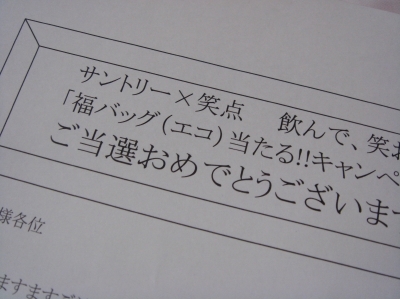 サントリー×笑点　飲んで、笑お
「福バッグ(エコ)当たる!!キャンペ
ご当選おめでとうございます
様各位
ますますご